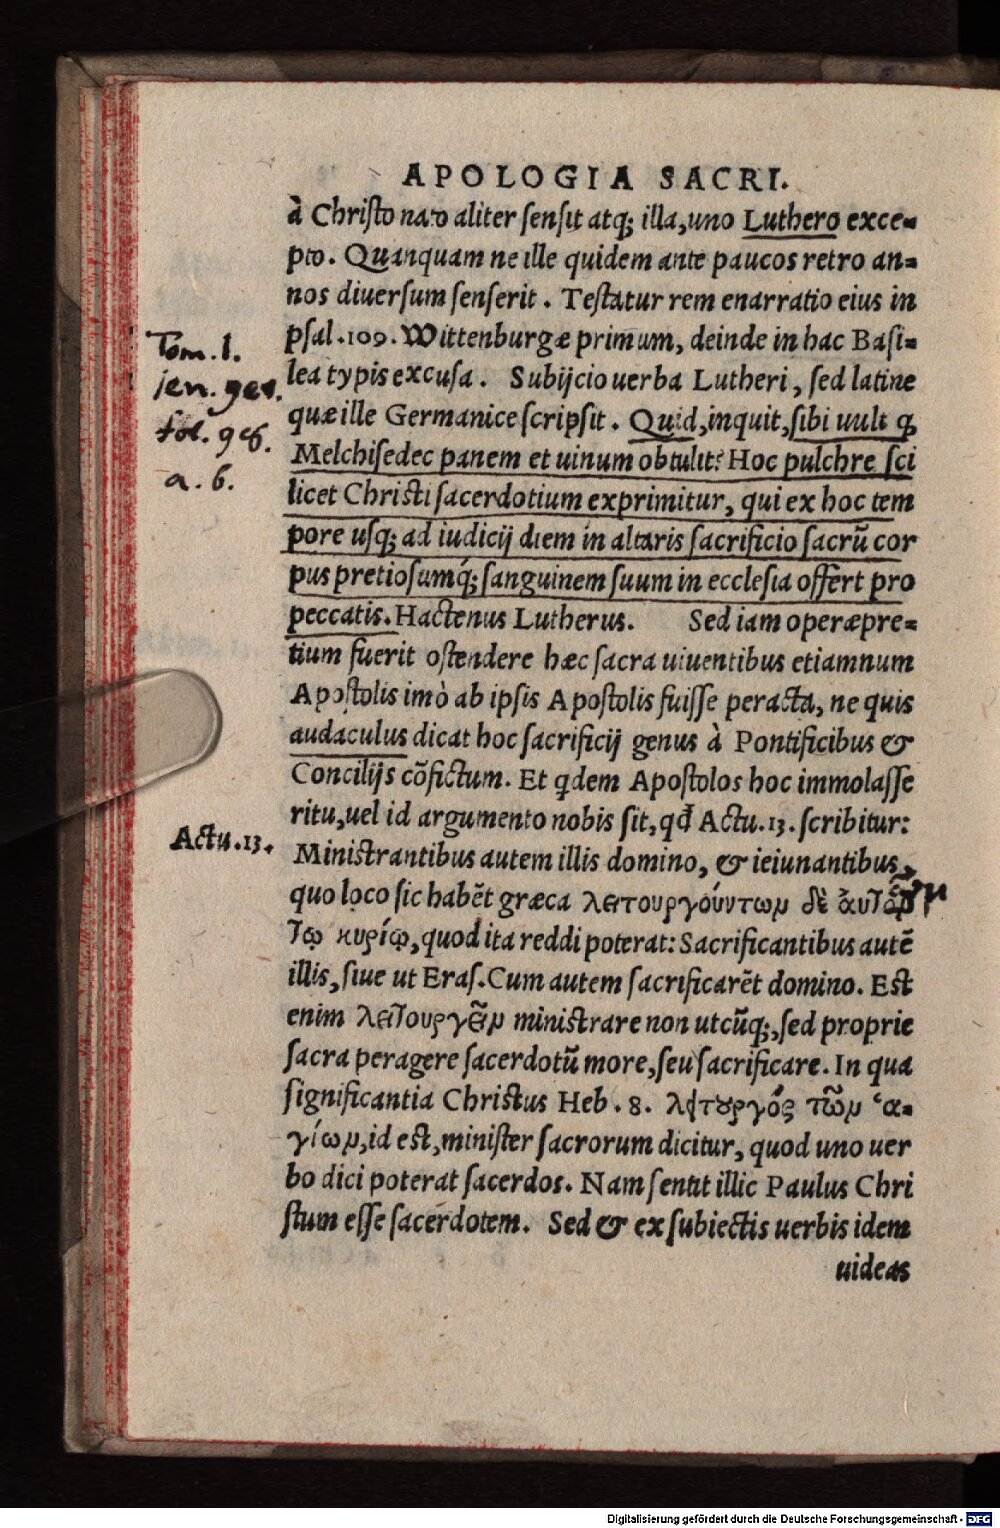 APOLOGIA SACRI.
à Christo nato aliter sensit atq; illa, uno Luthero exce-
pto. Quanquam ne ille quidem ante paucos retro an-
nos diuersum senserit. Testatur rem enarratio eius in
psal. 109. Wittenburgæ primum, deinde in hac Basi-
lea typis excusa. Subijcio uerba Lutheri, sed latine
quæ ille Germanice scripsit. Quid, inquit, sibi uult ꝙ
Melchisedec panem et uinum obtulit? Hoc pulchre sci
licet Christi sacerdotium exprimitur, qui ex hoc tem
pore usq; ad iudicij diem in altaris sacrificio sacrũ cor
pus pretiosumq́; sanguinem suum in ecclesia offert pro
peccatis. Hactenus Lutherus. Sed iam operæpre-
tium fuerit ostendere hæc sacra uiuentibus etiamnum
Apostolis imò ab ipsis Apostolis fuisse peracta, ne quis
audaculus dicat hoc sacrificij genus à Pontificibus &
Concilijs cõfictum. Et qdem Apostolos hoc immolasse
ritu, uel id argumento nobis sit, qđ Actu. 13. scribitur:
Ministrantibus autem illis domino, & ieiunantibus,
quo loco sic habẽt græca λειτουργούντων δὲ ἀυτῶν
τῷ κυρίῳ, quod ita reddi poterat: Sacrificantibus autẽ
illis, siue ut Eras. Cum autem sacrificarẽt domino. Est
enim λειτουργεῖν ministrare non utcũq;, sed proprie
sacra peragere sacerdotũ more, seu sacrificare. In qua
significantia Christus Heb. 8. λειτουργὸς τῶν ἁ-
γίων, id est, minister sacrorum dicitur, quod uno uer
bo dici poterat sacerdos. Nam sentit illic Paulus Chri
stum esse sacerdotem. Sed & ex subiectis uerbis idem
uideas
Tom. 1.
jen. ger.
fol. 96.
a. b.
Actu. 13.
Digitalisierung gefördert durch die Deutsche Forschungsgemeinschaft - DFG